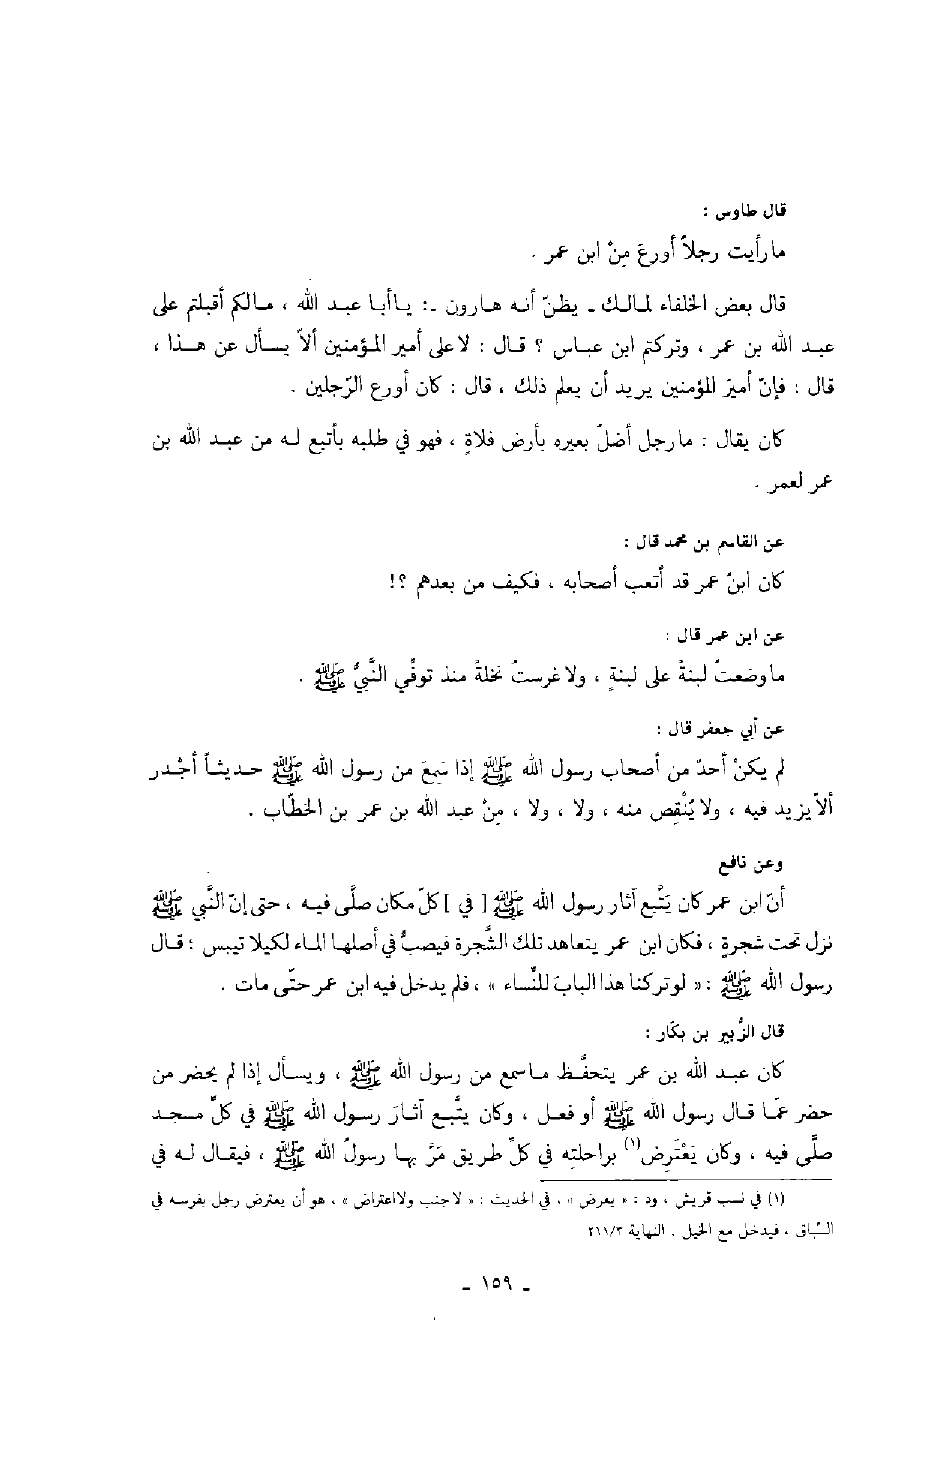 قال طاوس :
ما رأيت رجلاً أورعَ مِنْ ابن عمر .
قال بعض الخلفاء لمالك ـ يظنّ أنه هارون ـ: يا أبا عبد الله ، مالكم أقبلتم على
عبد الله بن عمر ، وتركتم ابن عباس ؟ قال : لا على أمير المؤمنين ألاّ يسأل عن هذا ،
قال : فإنّ أميرَ المؤمنين يريد أن يعلم ذلك ، قال : كان أورع الرّجلين .
كان يقال : ما رجل أضلّ بعيره بأرض فلاةٍ ، فهو في طلبه بأتبع له من عبد الله بن
عمر لعمر .
عن القاسم بن محمد قال :
كان ابنُ عمر قد أتعب أصحابه ، فكيف من بعدهم ؟!
عن ابن عمر قال :
ما وضعتُ لبنةً على لبنةٍ ، ولا غرستُ نخلةً منذ توفّي النَّبيُّ ﷺ .
عن أبي جعفر قال :
لم يكنْ أحدٌ من أصحاب رسول الله ﷺ إذا سَمِعَ من رسول الله ﷺ حديثاً أجْدر
ألاّ يزيد فيه ، ولا يُنْقِص منه ، ولا ، ولا ، مِنْ عبد الله بن عمر بن الخطّاب .
وعن نافع
أنّ ابن عمر كان يَتَّبع آثار رسول الله ﷺ [ في ] كلّ مكان صلَّى فيه ، حتى إنّ النَّبي ﷺ
نزل تحت شجرةٍ ، فكان ابن عمر يتعاهد تلك الشَّجرة فيصبُّ في أصلها الماء لكيلا تيبس ؛ قال
رسول الله ﷺ :« لو تركنا هذا البابَ للنِّساء » ، فلم يدخل فيه ابن عمر حتّى مات .
قال الزُّبير بن بكّار :
كان عبد الله بن عمر يتحفَّظ ما سمع من رسول الله ﷺ ، ويسأل إذا لم يحضر من
حضر عمّا قال رسول الله ﷺ أو فعل ، وكان يتَّبع آثارَ رسول الله ﷺ في كلِّ مسجد
صلَّى فيه ، وكان يَعْتَرِض(١) براحلته في كلِّ طريق مَرَّ بها رسولُ الله ﷺ ، فيقال له في
(١) في نسب قريش ، ود : « يعرض » ، في الحديث : « لا جنب ولا اعتراض » ، هو أن يعترض رجل بفرسه في
السِّباق ، فيدخل مع الخيل . النهاية ٢١١/٣
ـ ١٥٩ ـ